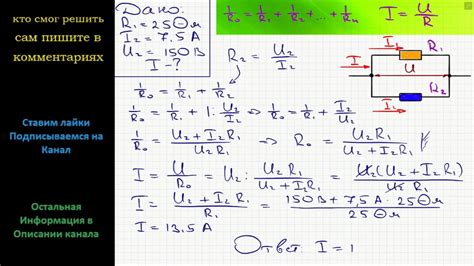 кто смог решить
сам пишите в
комментариях
Ставим лайки
Подписываемся на
Канал
Остальная
Информация в
Описании канала
Дано:
R₁ = 25 Ом
I₂ = 7,5 А
U₂ = 150 В
I - ?
1/R₀ = 1/R₁ + 1/R₂ + ... + 1/Rₙ
I = U/R
R₂ = U₂/I₂
I₁
R₁
I
U
I₂
R₂
1/R₀ = 1/R₁ + 1/R₂
1/R₀ = 1/R₁ + 1 : U₂/I₂ ⇒ 1/R₀ = 1/R₁ + I₂/U₂
1/R₀ = (U₂ + I₂R₁)/(U₂R₁) ⇒ R₀ = U₂R₁/(U₂ + I₂R₁)
I = U/R₀ = U₂ : U₂R₁/(U₂ + I₂R₁) = U₂(U₂ + I₂R₁)/(U₂R₁)
I = (U₂ + I₂R₁)/R₁ = (150 В + 7,5 А · 25 Ом)/(25 Ом)
I = 13,5 А
Ответ: I = 1